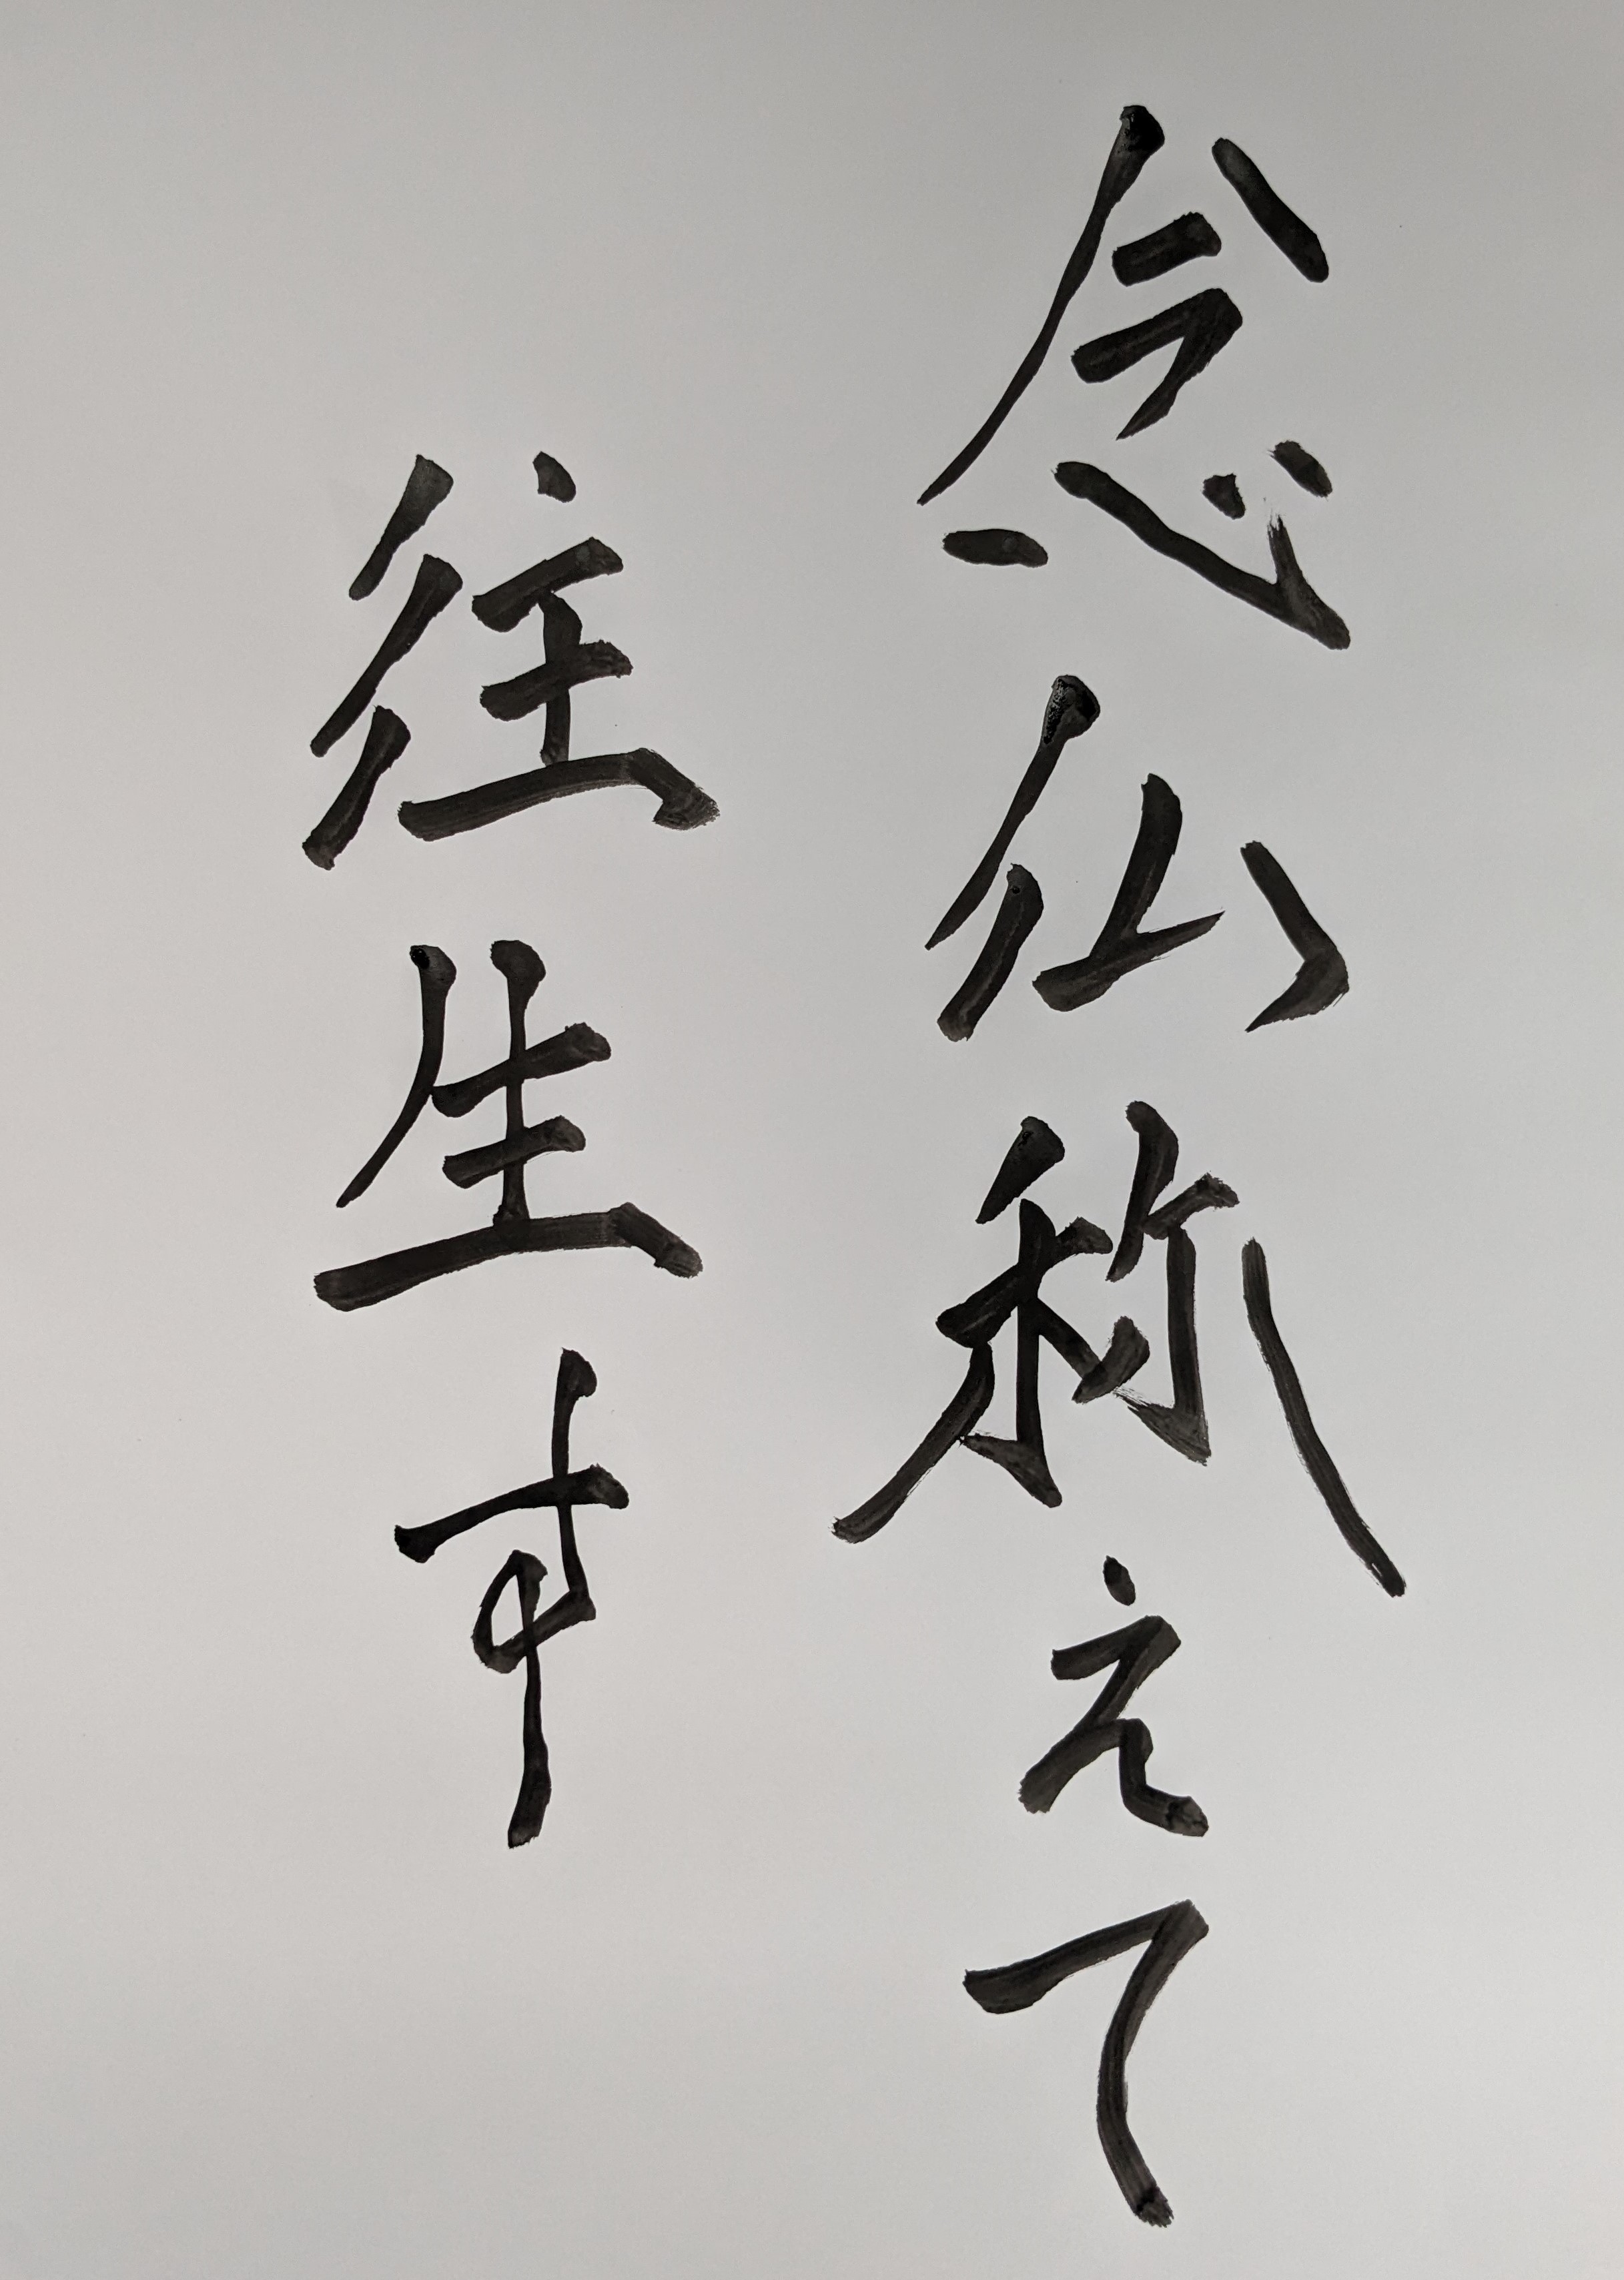 念仏称えて
往生す